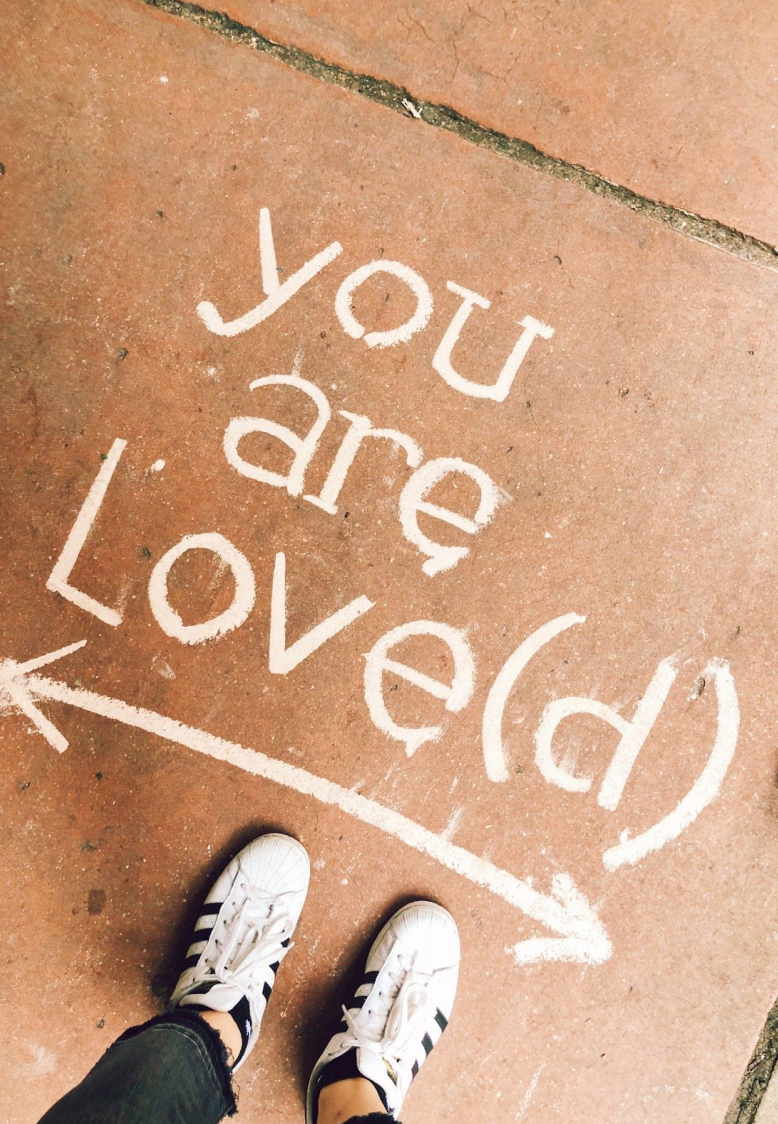 you
are
Love(d)